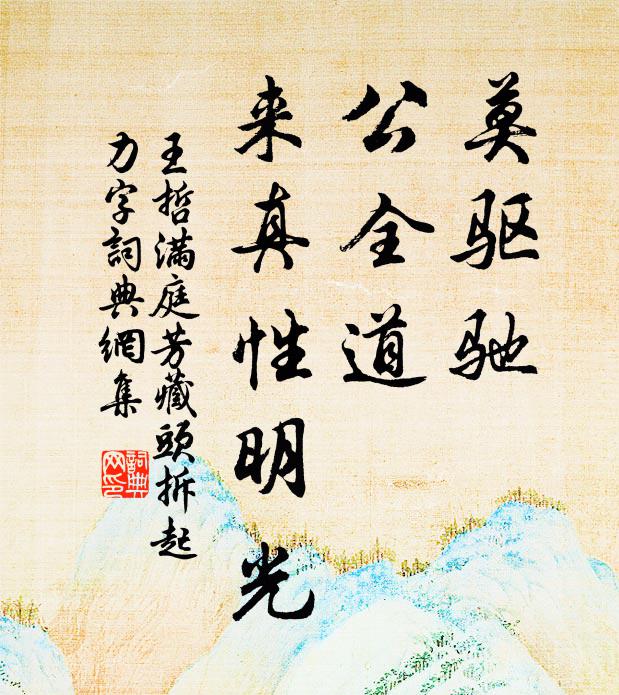 莫驱驰
公全道
来真性明光
王哲满庭芳藏头拆起
力字詞典網集
詞典
网印